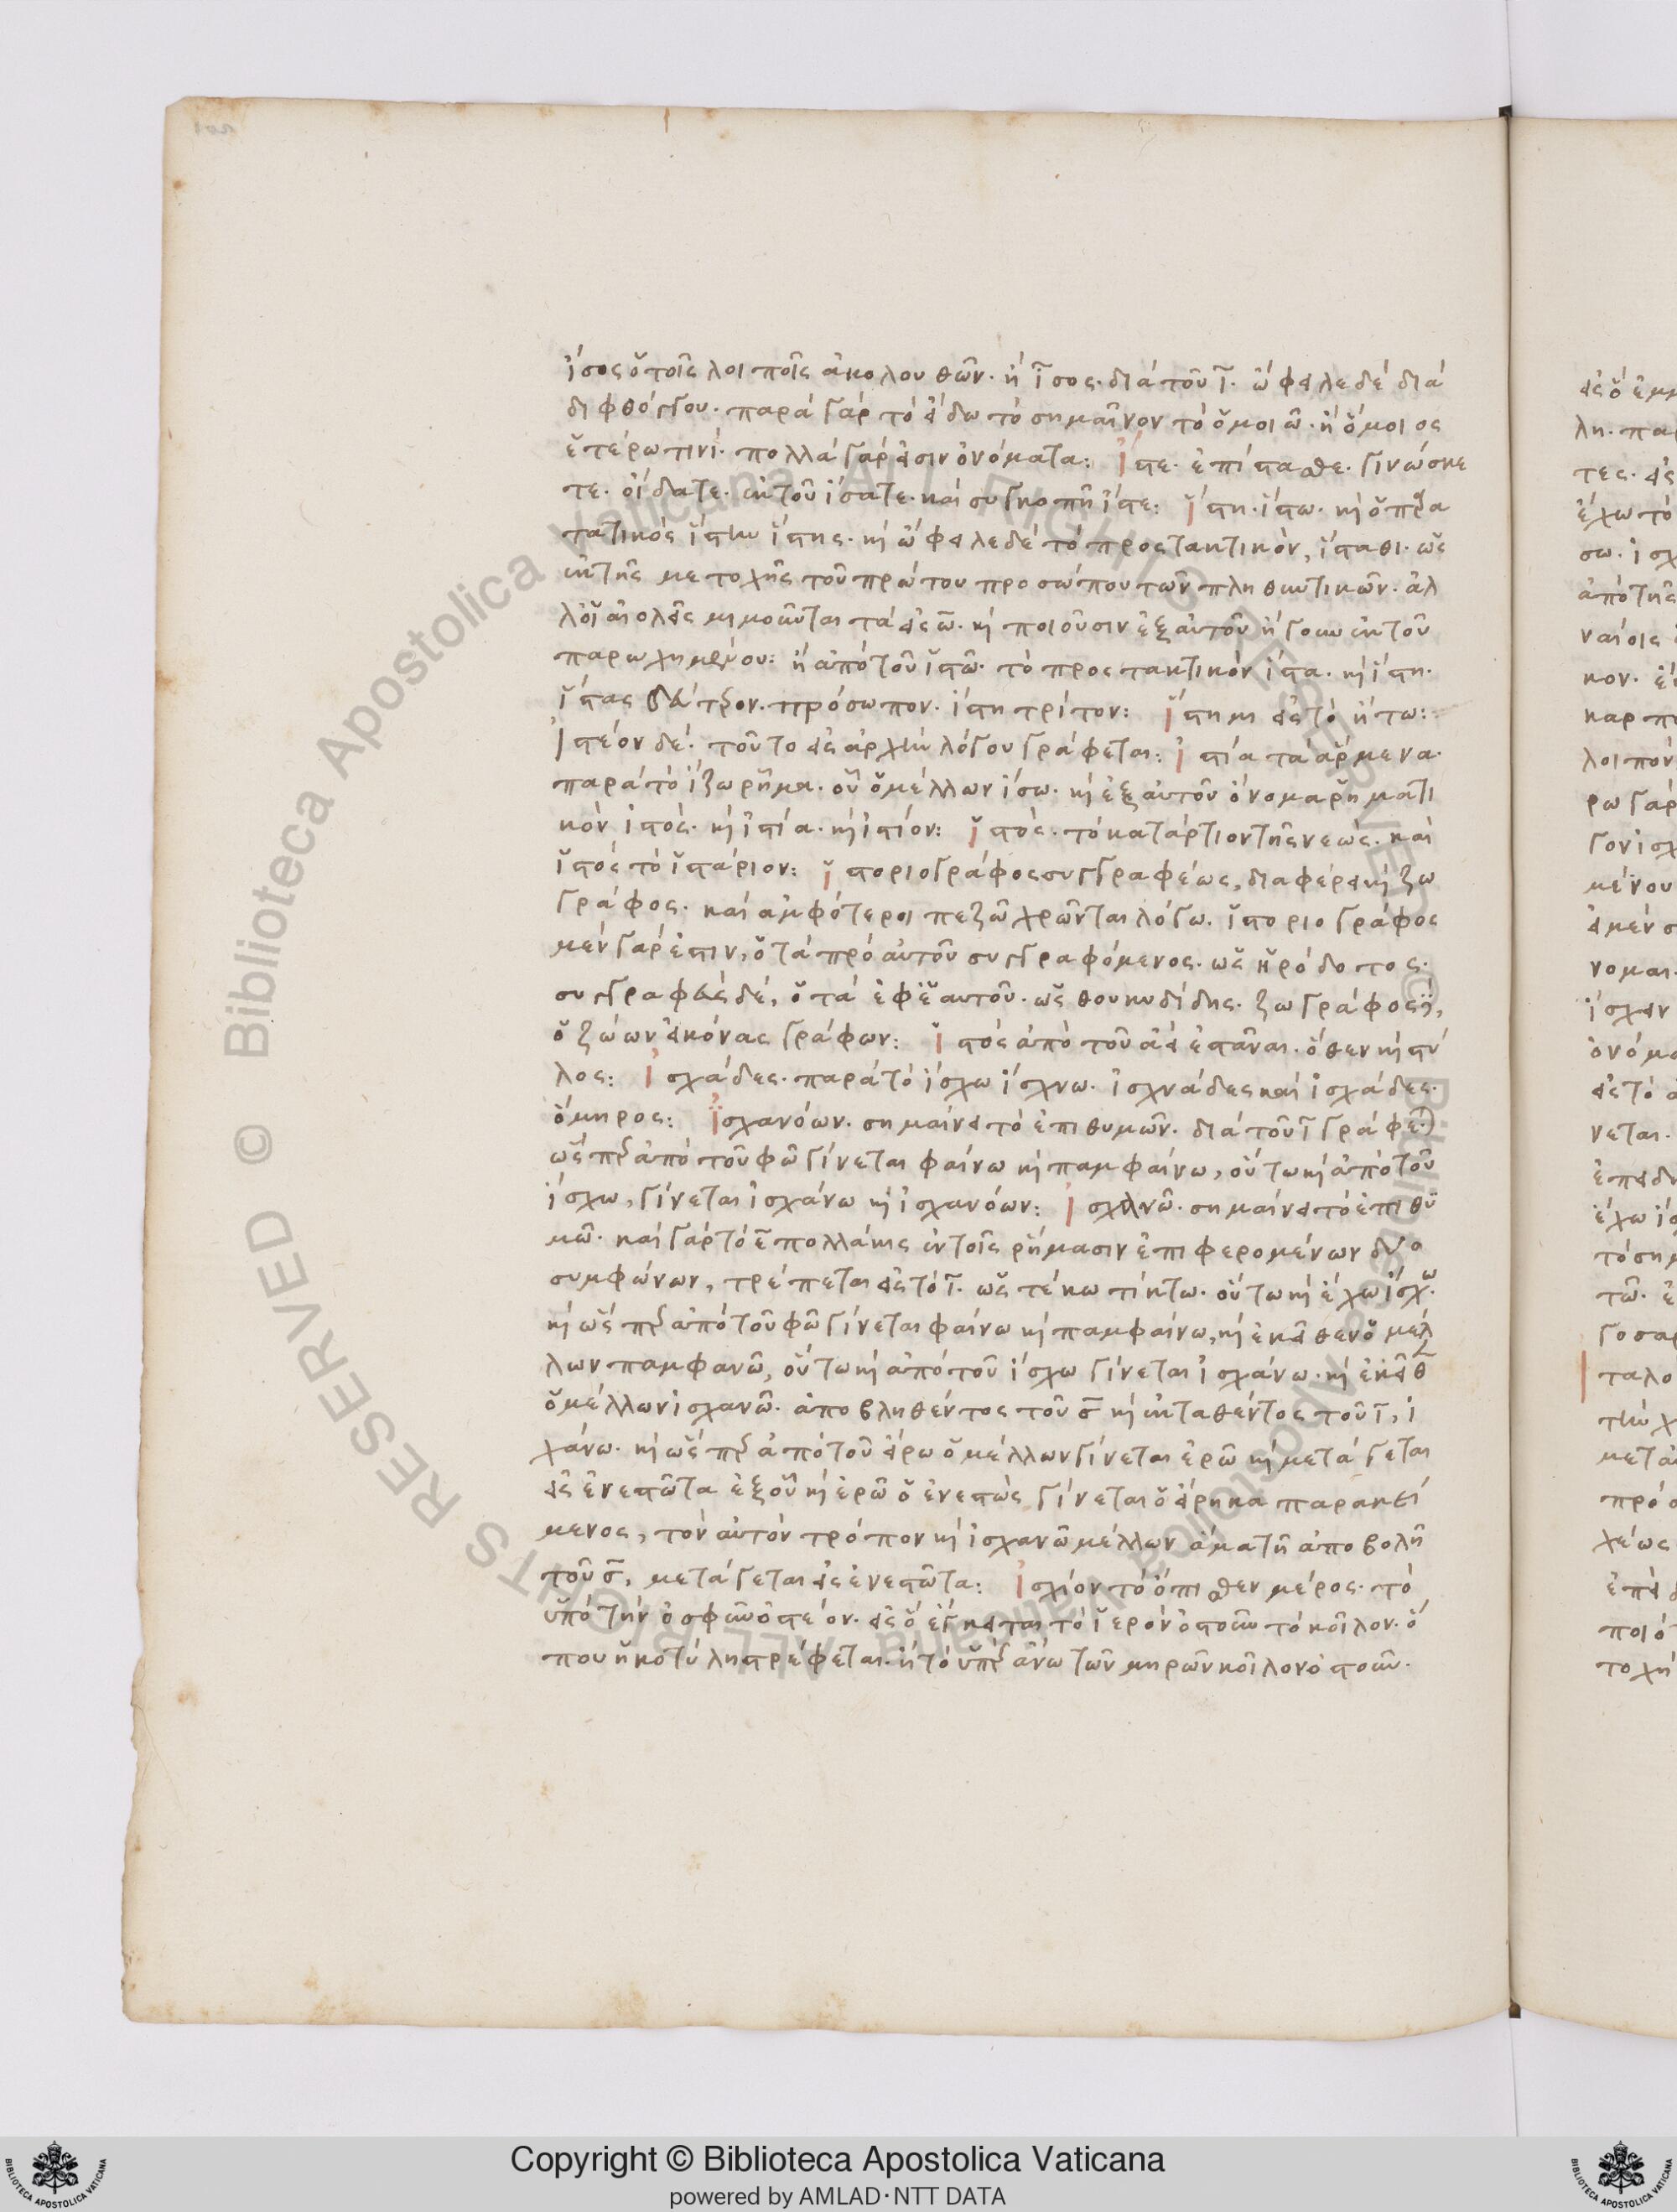 ἴσος ὁ τοῖς λοιποῖς ἀκολουθῶν· ἢ ἶσος· διὰ τοῦ ῑ. ὤφειλε δὲ διὰ
διφθόγγου· παρὰ γὰρ τὸ εἴδω τὸ σημαῖνον τὸ ὁμοιῶ· ἢ ὅμοιος
ἑτέρω τινί· πολλὰ γάρ εἰσιν ὀνόματα: ἴστε· ἐπίστασθε· γινώσκε
τε· οἴδατε· ἐκ τοῦ ἴσατε· καὶ συγκοπῆ ἴστε: ἵστη· ἵστω· καὶ ὁ
τατικὸς ἵστην ἵστης· καὶ ὤφειλε δὲ τὸ προστακτικὸν, ἵσταθι· ὡς
ἐκ τῆς μετοχῆς τοῦ πρώτου προσώπου τῶν πληθυντικῶν· ἀλ
λ' οἱ αἰολεῖς μιμοῦνται τὰ εἰς ω̄. καὶ ποιοῦσιν ἐξ αὐτοῦ ἤγουν ἐκ τοῦ
παρωχημένου: ἢ ἀπὸ τοῦ ἱστῶ· τὸ προστακτικὸν ἵστα· καὶ ἵστη·
ἵστας δεύτερον πρόσωπον· ἵστη τρίτον: ἵστημι εἰς τὸ ἤτω:
Ἰστέον δέ· τοῦτο εἰς ἀρχὴν λόγου γράφεται: ἱστία τὰ ἄρμενα·
παρὰ τὸ ἵζω ῥῆμα· οὗ ὁ μέλλων ἵσω· καὶ ἐξ αὐτοῦ ὄνομα ῥηματι
κὸν ἱστός· καὶ ἱστία· καὶ ἱστίον: ἱστός· τὸ κατάρτιον τῆς νεώς· καὶ
ἱστὸς τὸ ἱστάριον: ἱστοριογράφος συγγραφέως, διαφέρει καὶ ζω
γράφος· καὶ ἀμφότεροι πεζῶ χρῶνται λόγω· ἱστοριογράφος
μὲν γάρ ἐστιν, ὁ τὰ πρὸ αὐτοῦ συγγραφόμενος· ὡς ἡρόδοτος·
συγγραφεὺς δὲ, ὁ τὰ ἐφ' ἑαυτοῦ· ὡς θουκυδίδης· ζωγράφος δὲ,
ὁ ζώων εἰκόνας γράφων: ἱστὸς ἀπὸ τοῦ ἀεὶ ἑστάναι· ὅθεν καὶ στύ
λος: Ἰσχάδες· παρὰ τὸ ἴσχω ἴσχνω· ἰσχνάδες καὶ ἰσχάδες·
ὅμηρος: Ἰσχανόων· σημαίνει τὸ ἐπιθυμῶν· διὰ τοῦ ῑ γράφεται
ὥσπερ ἀπὸ τοῦ φῶ γίνεται φαίνω καὶ παμφαίνω, οὕτω καὶ ἀπὸ τοῦ
ἴσχω, γίνεται ἰσχάνω καὶ ἰσχανόων: Ἰσχανῶ· σημαίνει τὸ ἐπιθυ
μῶ· καὶ γὰρ τὸ ε̄ πολλάκις ἐν τοῖς ῥήμασιν ἐπιφερομένων δύο
συμφώνων, τρέπεται εἰς τὸ ῑ. ὡς τέκω τίκτω· οὕτω καὶ ἔχω ἴσχω·
καὶ ὥσπερ ἀπὸ τοῦ φῶ γίνεται φαίνω καὶ παμφαίνω, καὶ ἐκεῖθεν ὁ μέλ
λων παμφανῶ, οὕτω καὶ ἀπὸ τοῦ ἴσχω γίνεται ἰσχάνω· καὶ ἐκεῖθεν
ὁ μέλλων ἰσχανῶ· ἀποβληθέντος τοῦ σ̄ καὶ ἐκταθέντος τοῦ ῑ, ἱ
χάνω· καὶ ὥσπερ ἀπὸ τοῦ εἴρω ὁ μέλλων γίνεται ἐρῶ καὶ μετάγεται
εἰς ἐνεστῶτα ἐξ οὗ καὶ ἐρῶ ὁ ἐνεστὼς γίνεται ὁ εἴρηκα παρακεί
μενος, τὸν αὐτὸν τρόπον καὶ ἰσχανῶ μέλλων ἅμα τῆ ἀποβολῆ
τοῦ σ̄, μετάγεται εἰς ἐνεστῶτα: Ἰσχίον τὸ ὄπισθεν μέρος· τὸ
ὑπὸ τὴν ὀσφῦν ὀστέον· εἰς ὃ ἔγκειται τὸ ἱερὸν ὀστοῦν τὸ κοῖλον· ὅ
που ἡ κοτύλη στρέφεται· ἢ τὸ ὑπεράνω τῶν μηρῶν κοῖλον ὀστοῦν.
Copyright © Biblioteca Apostolica Vaticana
powered by AMLAD·NTT DATA